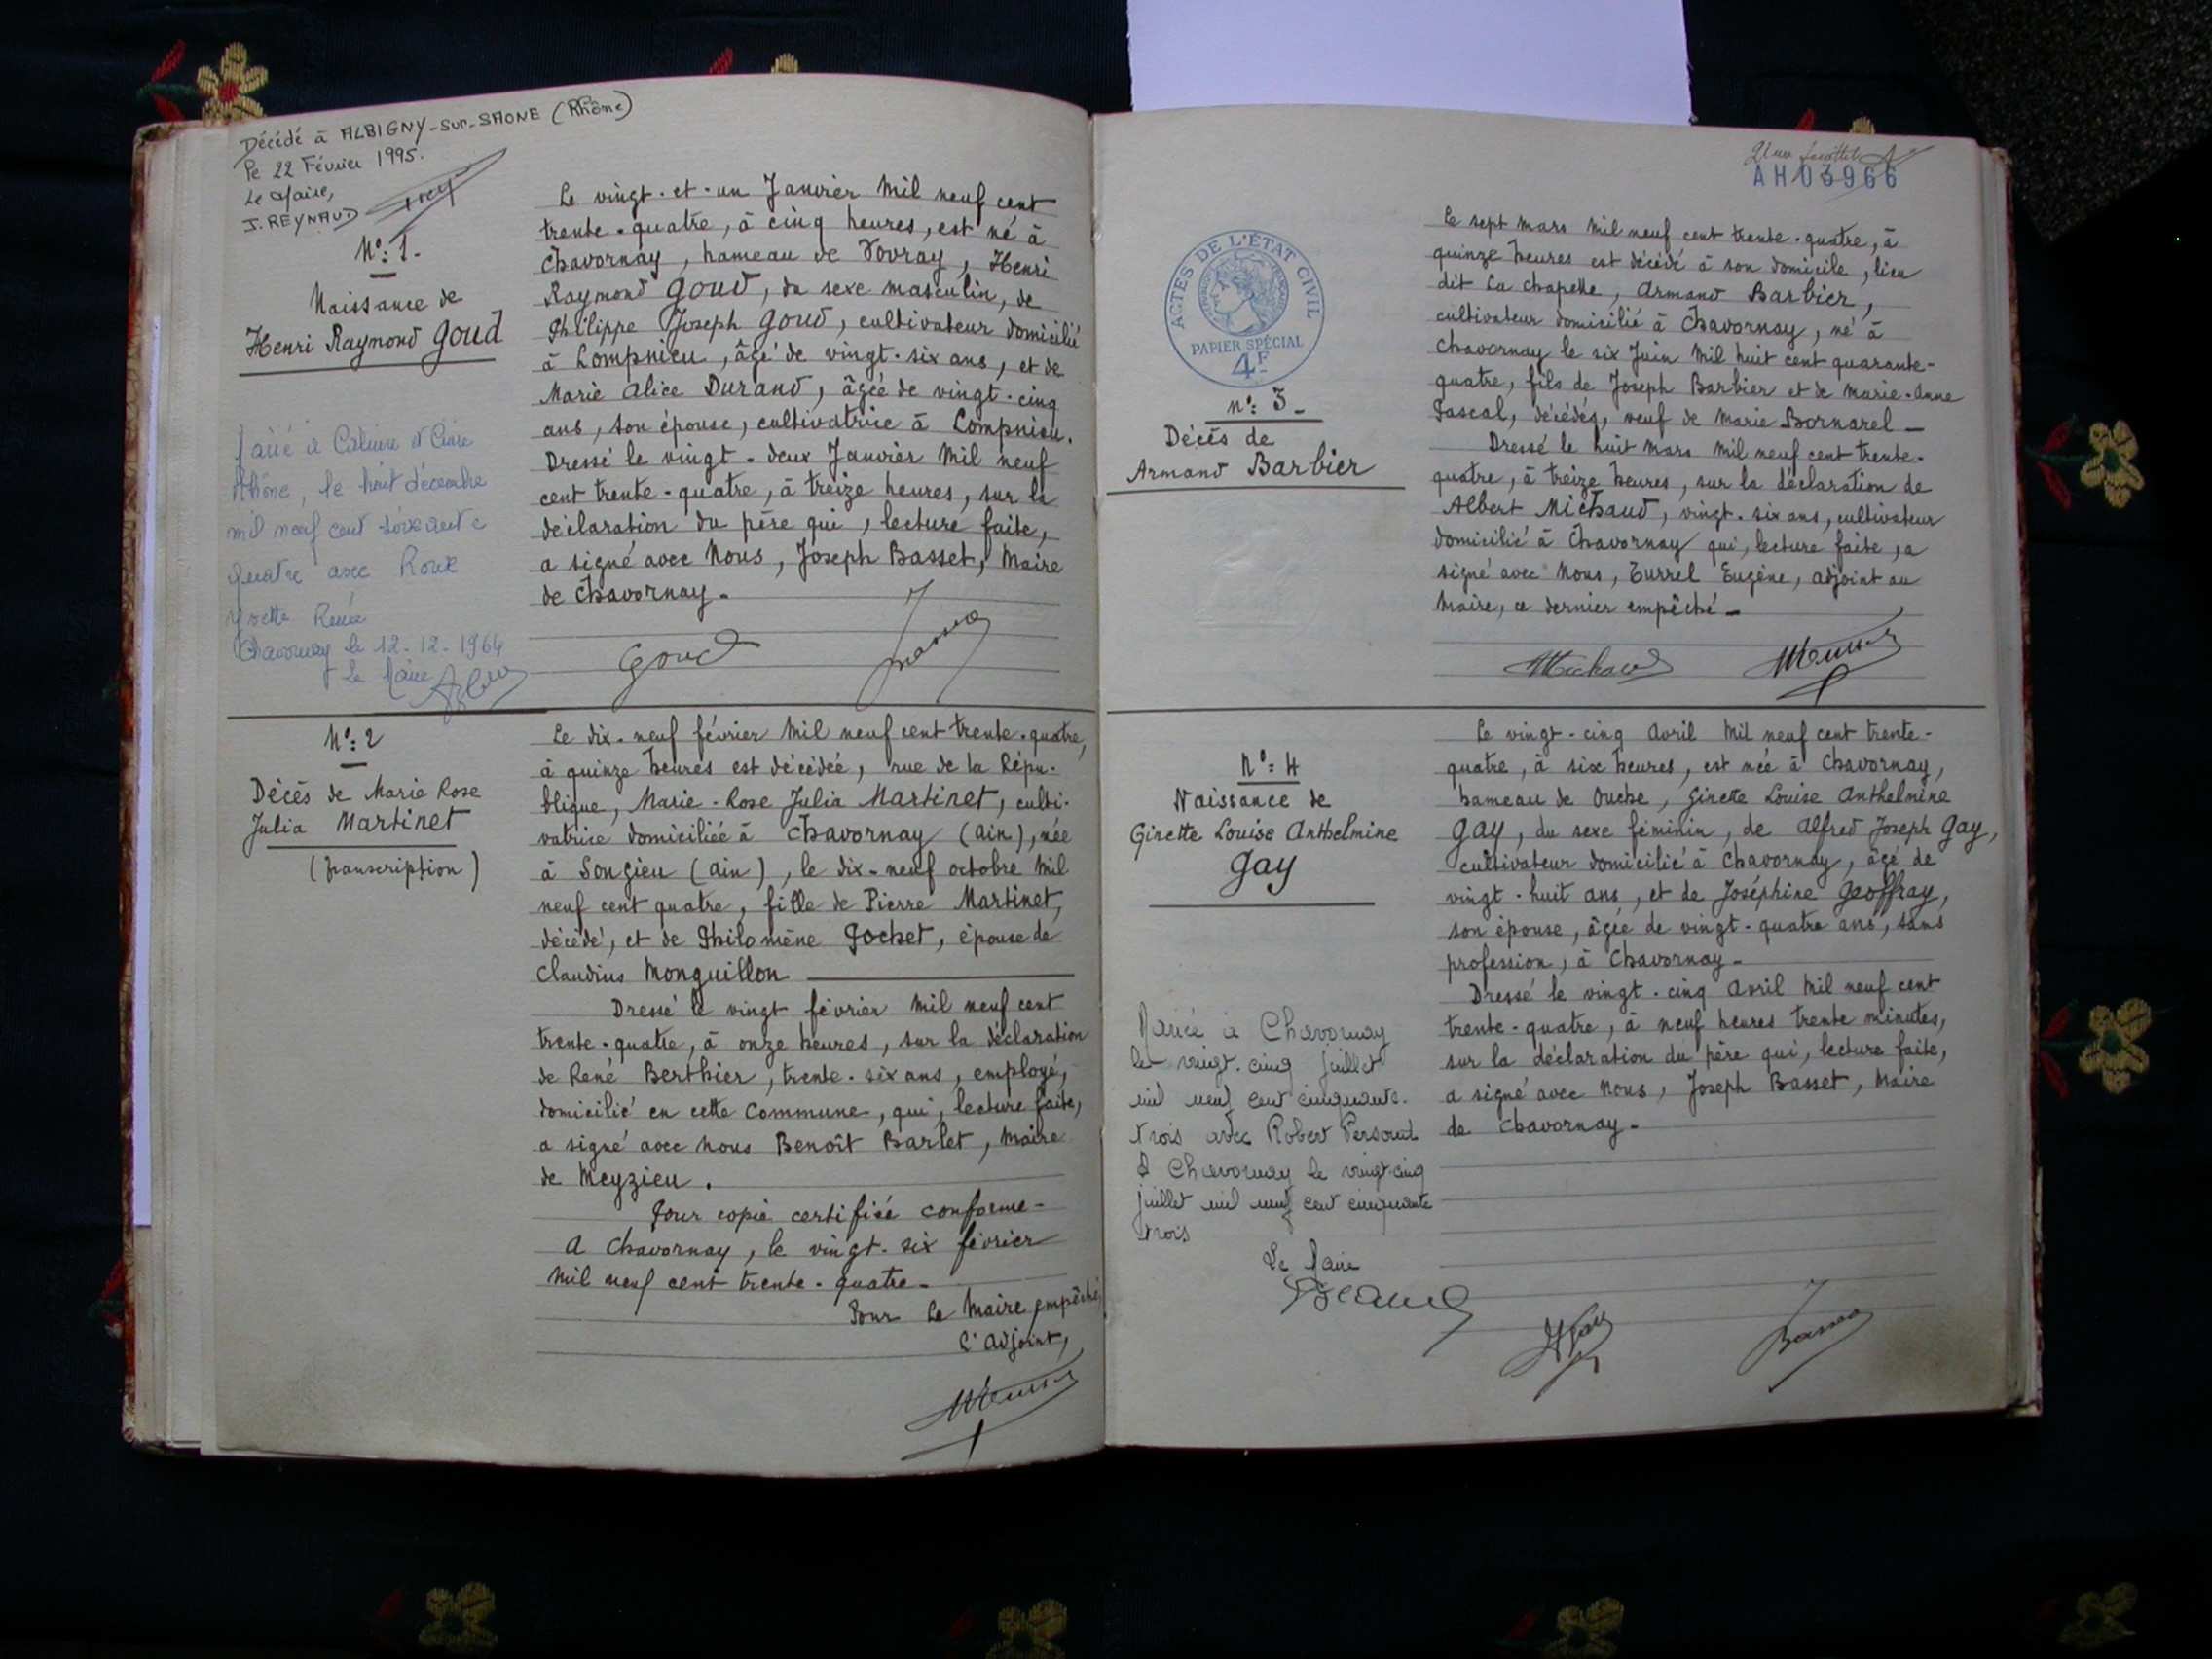 Décédé à ALBIGNY-sur-SAONE (Rhône)
Le 22 Février 1995.
Le Maire,
J. REYNAUD
N°: 1.
Naissance de
Henri Raymond Goud
Marié à Caluire et Cuire
Rhône, le huit décembre
mil neuf cent soixante
quatre avec Roux
Yvette Renée
Chavornay le 12-12-1964
Le Maire
Le vingt-et-un Janvier mil neuf cent
trente-quatre, à cinq heures, est né à
Chavornay, hameau de Vovray, Henri
Raymond Goud, du sexe masculin, de
Philippe Joseph Goud, cultivateur domicilié
à Lompnieu, âgé de vingt-six ans, et de
Marie Alice Durand, âgée de vingt-cinq
ans, son épouse, cultivatrice à Lompnieu.
Dressé le vingt-deux Janvier mil neuf
cent trente-quatre, à treize heures, sur la
déclaration du père qui, lecture faite,
a signé avec Nous, Joseph Basset, Maire
de Chavornay.
Goud
N°: 2
Décès de Marie Rose
Julia Martinet
(transcription)
Le dix-neuf février mil neuf cent trente-quatre,
à quinze heures est décédée, rue de la Répu-
blique, Marie-Rose Julia Martinet, culti-
vatrice domiciliée à Chavornay (Ain), née
à Songieu (Ain), le dix-neuf octobre mil
neuf cent quatre, fille de Pierre Martinet,
décédé, et de Philomène Gochet, épouse de
Claudius Monguillon
Dressé le vingt février mil neuf cent
trente-quatre, à onze heures, sur la déclaration
de René Berthier, trente-six ans, employé,
domicilié en cette Commune, qui, lecture faite,
a signé avec nous Benoît Barlet, Maire
de Meyzieu.
Pour copie certifiée conforme-
A Chavornay, le vingt-six février
mil neuf cent trente-quatre-
Pour Le Maire empêché,
L'adjoint,
AH03966
ACTES DE L'ÉTAT CIVIL
PAPIER SPÉCIAL
4F
n°: 3-
Décès de
Armand Barbier
Le sept mars mil neuf cent trente-quatre, à
quinze heures est décédé à son domicile, lieu
dit La Chapelle, Armand Barbier,
cultivateur domicilié à Chavornay, né à
Chavornay le six Juin mil huit cent quarante-
quatre, fils de Joseph Barbier et de Marie-Anne
Pascal, décédés, veuf de Marie Bornarel-
Dressé le huit mars mil neuf cent trente-
quatre, à treize heures, sur la déclaration de
Albert Michaud, vingt-six ans, cultivateur
domicilié à Chavornay qui, lecture faite, a
signé avec Nous, Turrel Eugène, adjoint au
Maire, ce dernier empêché-
Michaud
N°: 4
Naissance de
Ginette Louise Anthelmine
Gay
Mariée à Chavornay
le vingt-cinq juillet
mil neuf cent cinquante-
trois avec Robert Persoud
A Chavornay le vingt-cinq
juillet mil neuf cent cinquante
trois
Le Maire
Le vingt-cinq Avril mil neuf cent trente-
quatre, à six heures, est née à Chavornay,
hameau de Ouche, Ginette Louise Anthelmine
Gay, du sexe féminin, de Alfred Joseph Gay,
cultivateur domicilié à Chavornay, âgé de
vingt-huit ans, et de Joséphine Geoffray,
son épouse, âgée de vingt-quatre ans, sans
profession, à Chavornay-
Dressé le vingt-cinq Avril mil neuf cent
trente-quatre, à neuf heures trente minutes,
sur la déclaration du père qui, lecture faite,
a signé avec Nous, Joseph Basset, Maire
de Chavornay-
Basset